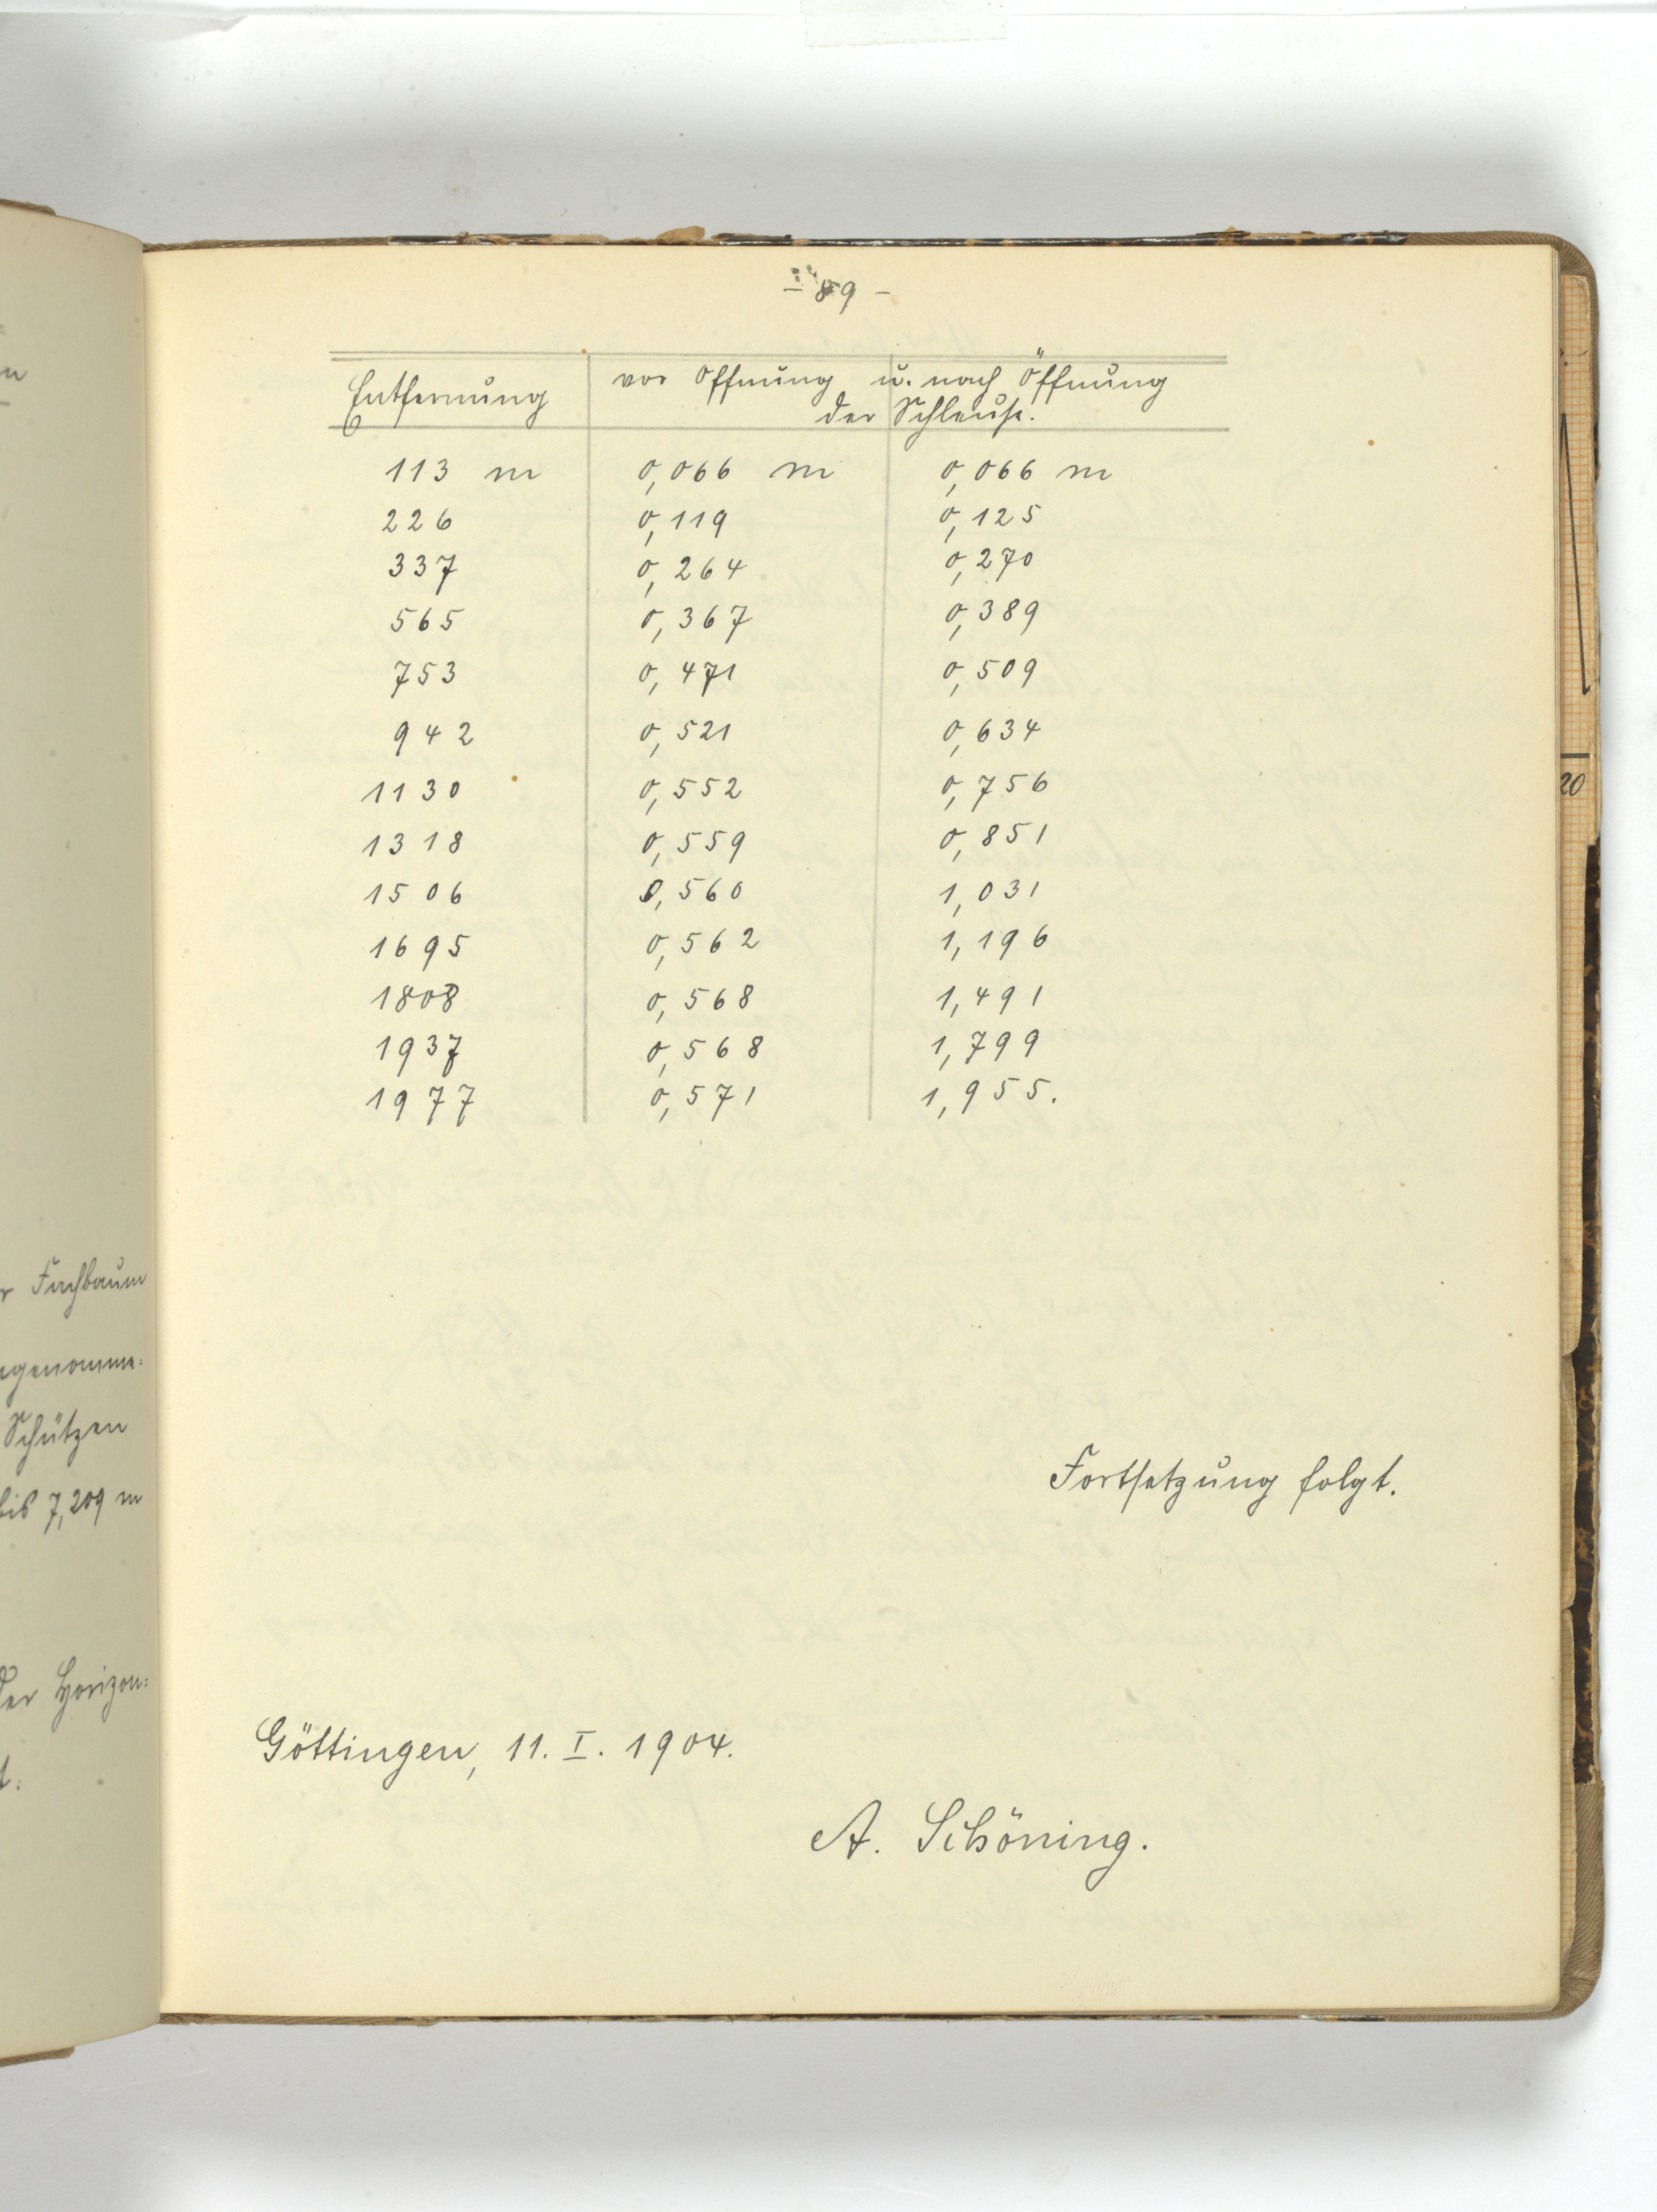 - 89 -
Entfernung vor Öffnung u. nach Öffnung
der Schleuse.
113 m 0,066 m 0,066 m
226 0,119 0,125
337 0,264 0,270
565 0,367 0,389
753 0,471 0,509
942 0,521 0,634
1130 0,552 0,756
1318 0,559 0,851
1506 0,560 1,031
1695 0,562 1,196
1808 0,568 1,491
1937 0,568 1,799
1977 0,571 1,955.
Fortsetzung folgt.
Göttingen, 11. I. 1904.
A. Schöning.
Fachbaum
Schützen
bis 7,209 m
der Horizon=
20